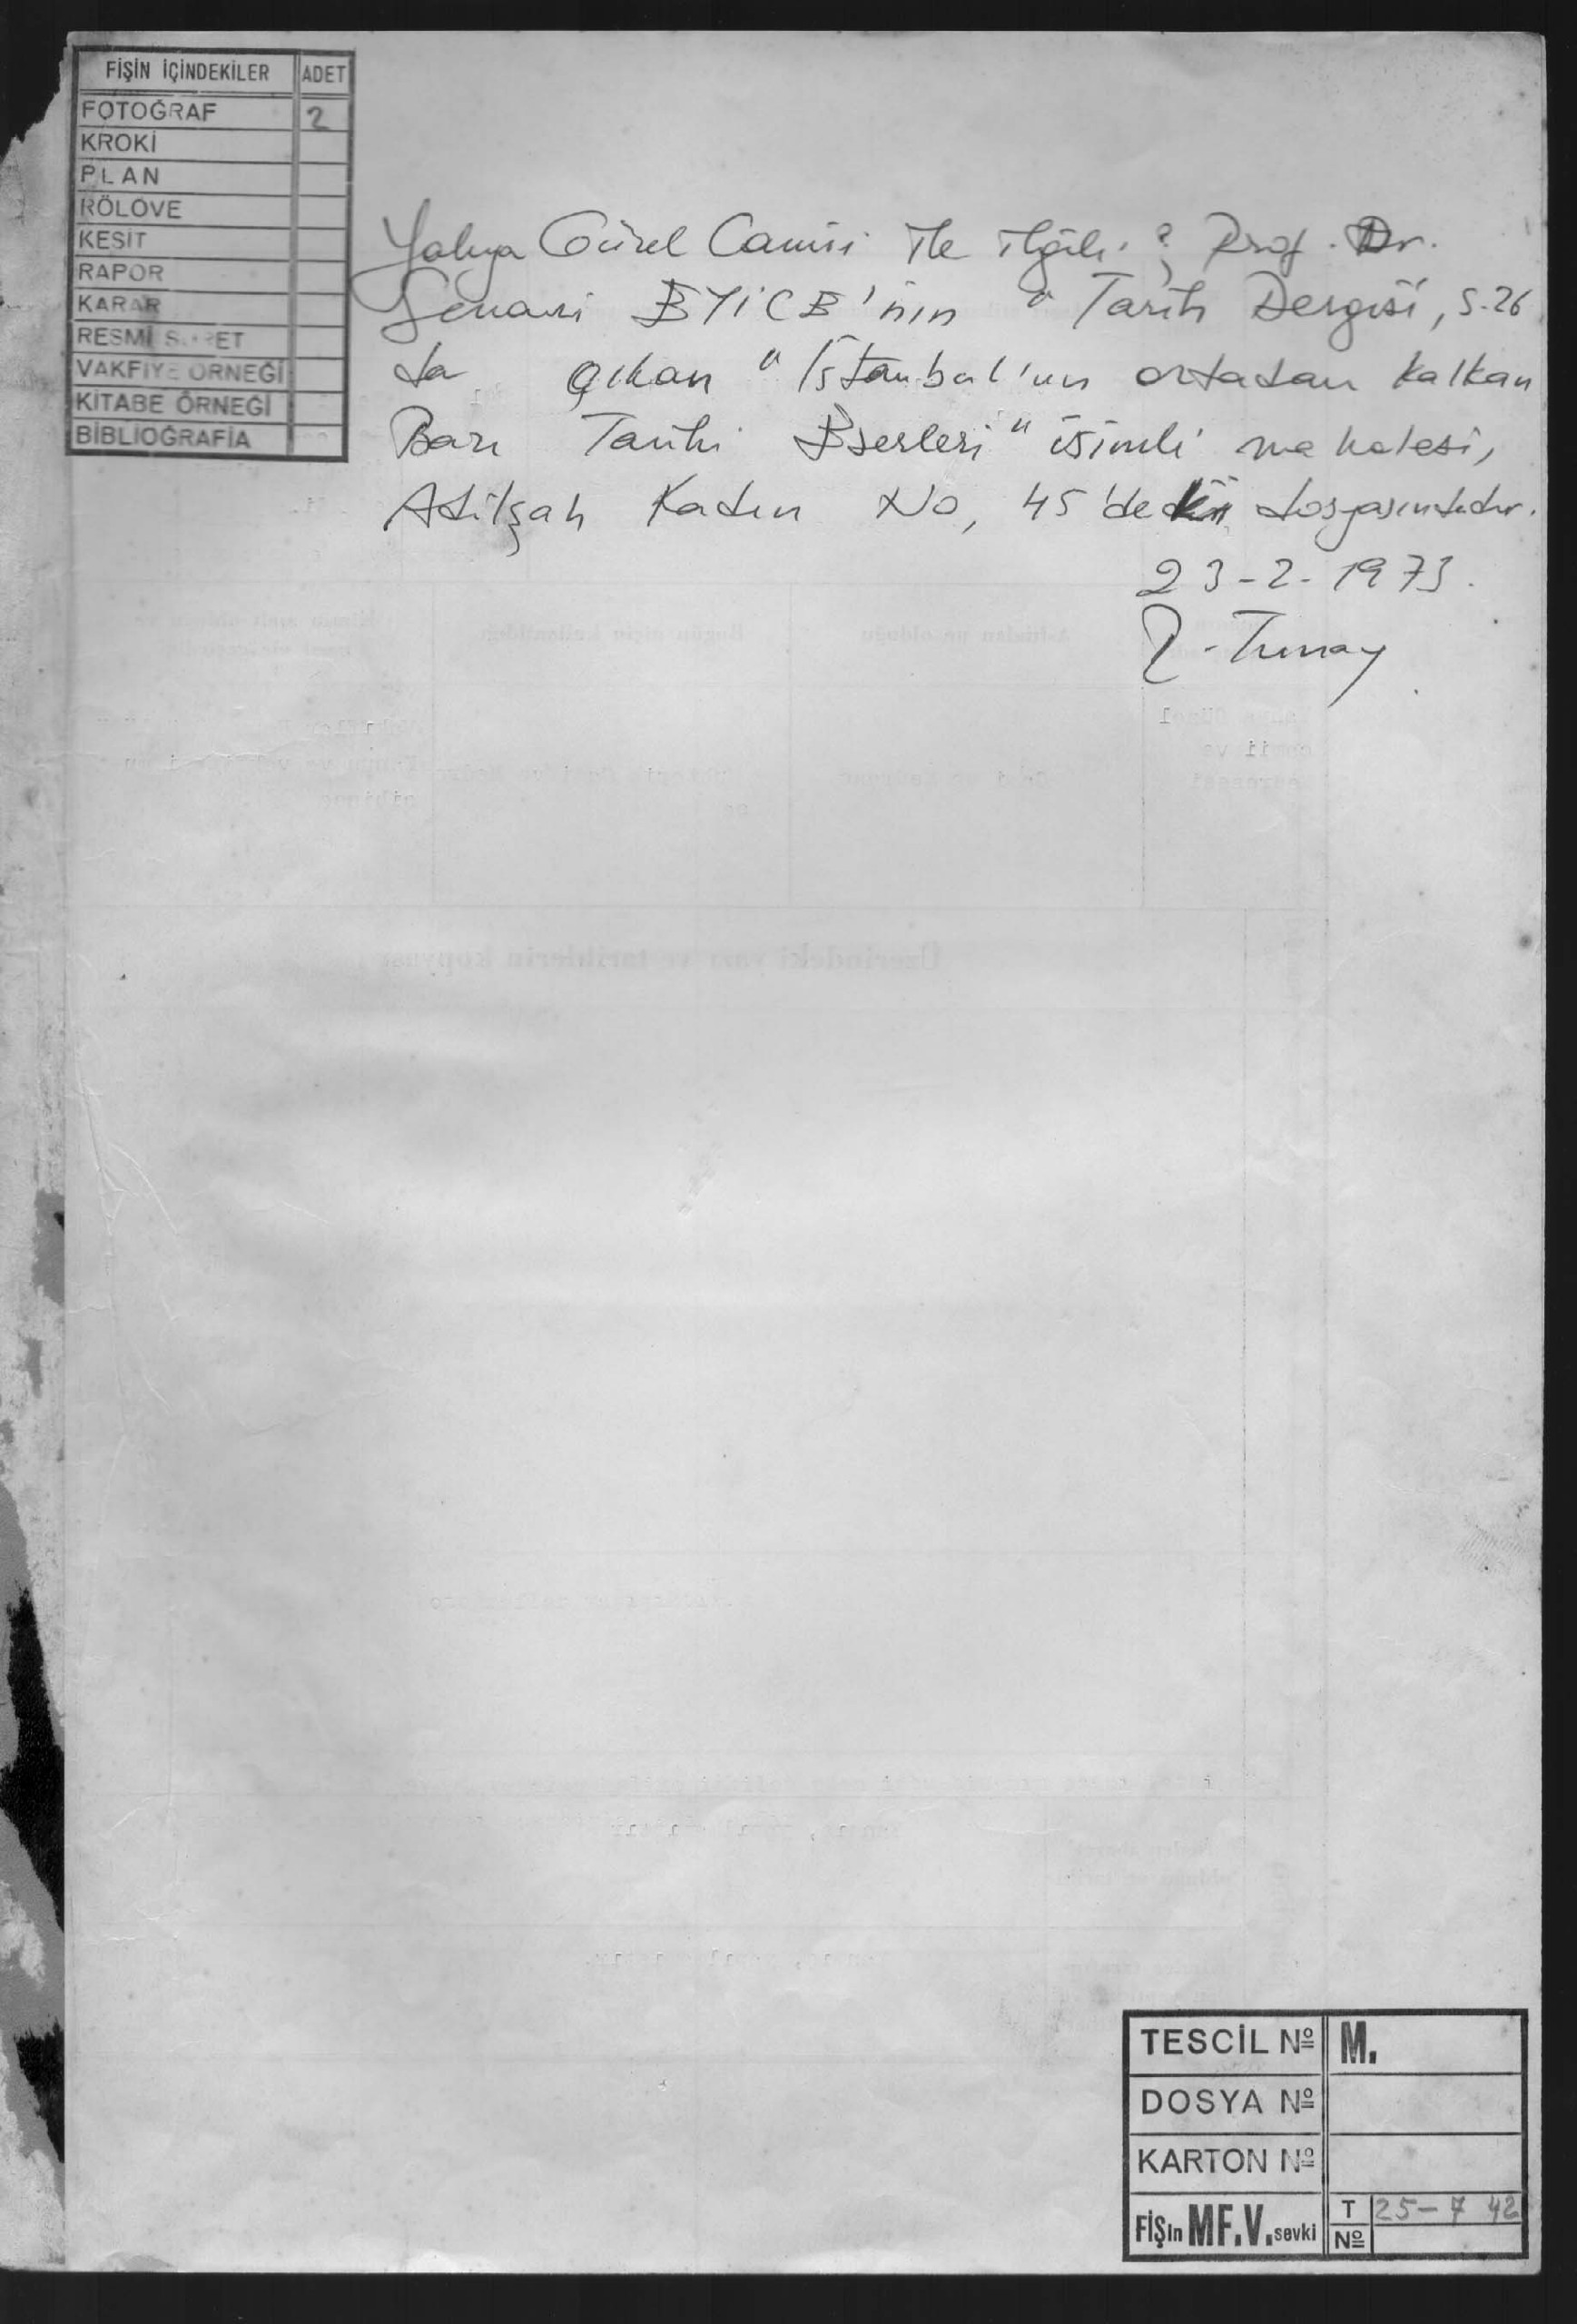 FİŞİN İÇİNDEKİLER ADET
FOTOĞRAF 2
KROKİ
PLAN
RÖLÖVE
KESİT
RAPOR
KARAR
RESMİ SURET
VAKFİYE ÖRNEĞİ
KİTABE ÖRNEĞİ
BİBLİOĞRAFİA
Yahya Güzel Camisi ile ilgili: Prof. Dr.
Semavi EYİCE'nin "Tarih Dergisi, S.26
da çıkan "İstanbul'un ortadan kalkan
Bazı Tarihi Eserleri" isimli makalesi,
Adilşah Kadın No, 45'deki dosyasındadır.
23-2-1973.
Tunay
Üzerindeki yazı ve tarihlerin kopyası
TESCİL Nº M.
DOSYA Nº
KARTON Nº
FİŞin MF.V. sevki T 25-7 42
Nº